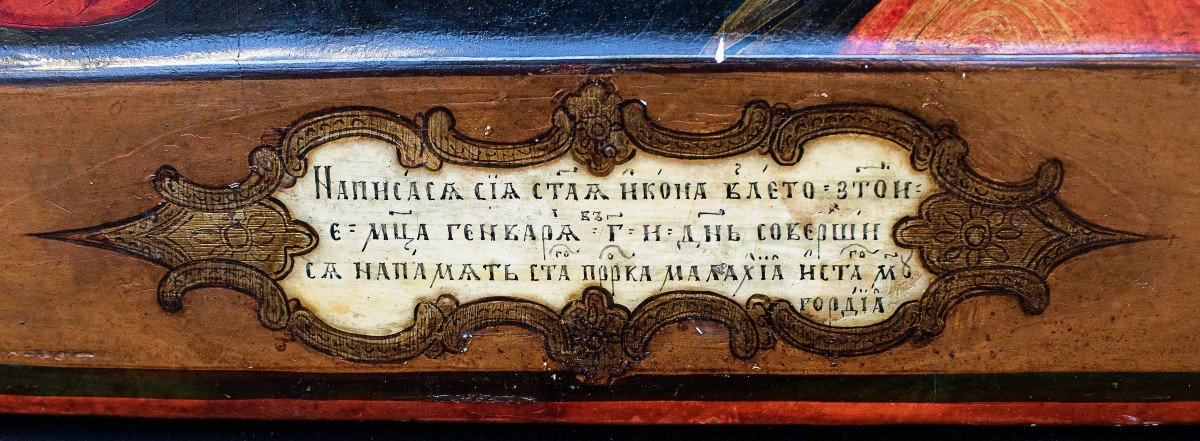 Написася сїѧ ст҃аѧ и҆кона в лето = ЗТОИ =
е = мц҃а генварѧ въ = Г = и = дн҃ь соверши
сѧ напамѧть ст҃а пррка малахїа и ст҃а мꙋ
гордїа